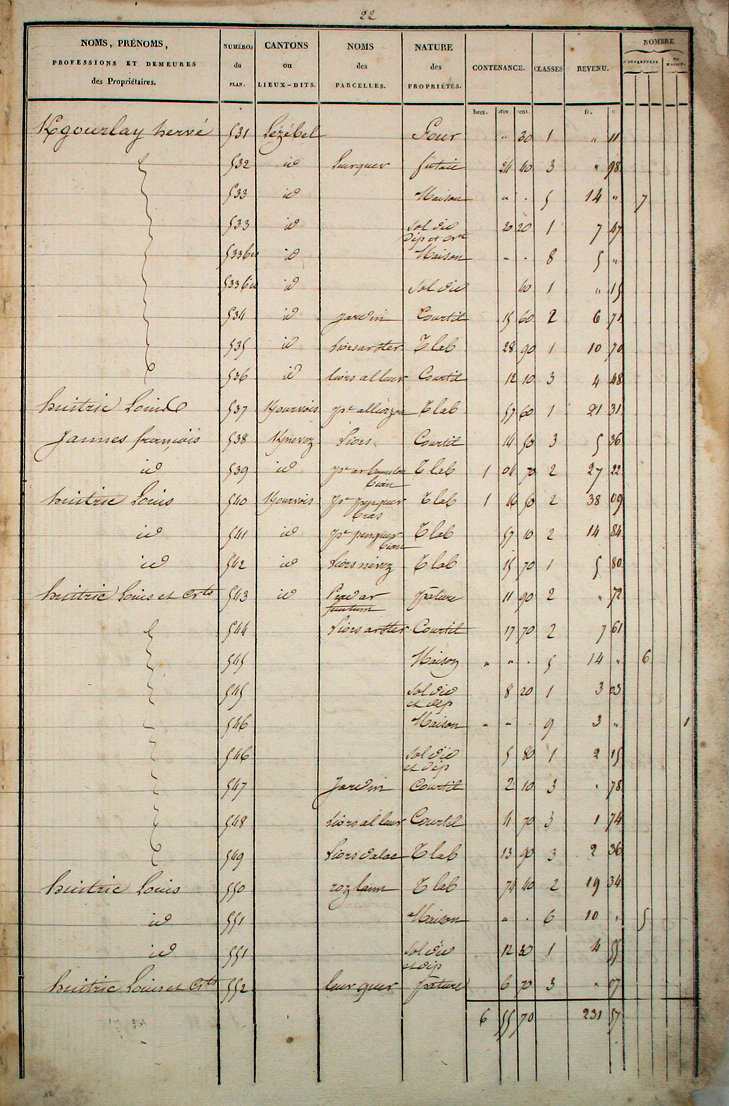 22
NOMS, PRÉNOMS, PROFESSIONS ET DEMEURES des Propriétaires. NUMÉROS du PLAN. CANTONS ou LIEUX-DITS. NOMS des PARCELLES. NATURE des PROPRIÉTÉS. CONTENANCE. CLASSES REVENU. NOMBRE D'OUVERTURES DE MAISONS
hect. ares. cent. fr. c
Kgourlay hervé 531 Lézébel Four " 30 1 " 11
532 id leurguer futaie 24 40 3 " 98
533 id Maison " " 5 14 " 7
533 id sol did dép et crt 20 20 1 7 47
533 bis id Maison - - 8 5 "
533 bis id sol did 40 1 " 15
534 id Jardin Courtil 15 60 2 6 71
535 id liors ar ster T lab 28 90 1 10 70
536 id liors al leur Courtil 12 10 3 4 48
huitric Louis 537 Kourvois T lab 57 60 1 21 31
Jannes françois 538 Knevez Liors Courtil 14 50 3 5 36
id 539 id bian T lab 1 01 70 2 27 22
huitric Louis 540 Kourvois pr penguer bras T lab 1 46 50 2 38 09
id 541 id pr penguer bian T lab 57 10 2 14 84
id 542 id liors nevez T lab 15 70 1 5 80
huitric Louis et Crts 543 id Prad ar feunteun Pature 11 90 2 " 72
544 liors ar ster Courtil 17 70 2 7 61
545 Maison " " . 5 14 " 6
545 sol did et dép 8 20 1 3 03
546 Maison - - . 9 3 " 1
546 sol did et dép 5 80 1 2 15
547 Jardin Courtil 2 10 3 " 78
548 liors al leur Courtil 4 70 3 1 74
549 liors dalas T lab 13 90 3 2 36
huitric Louis 550 roz lann T lab 74 40 2 19 34
id 551 Maison " . 6 10 " 5
id 551 sol did et dép 12 30 1 4 55
huitric Louis et Crts 552 leur guer pature 6 70 3 " 07
6 55 70 231 57